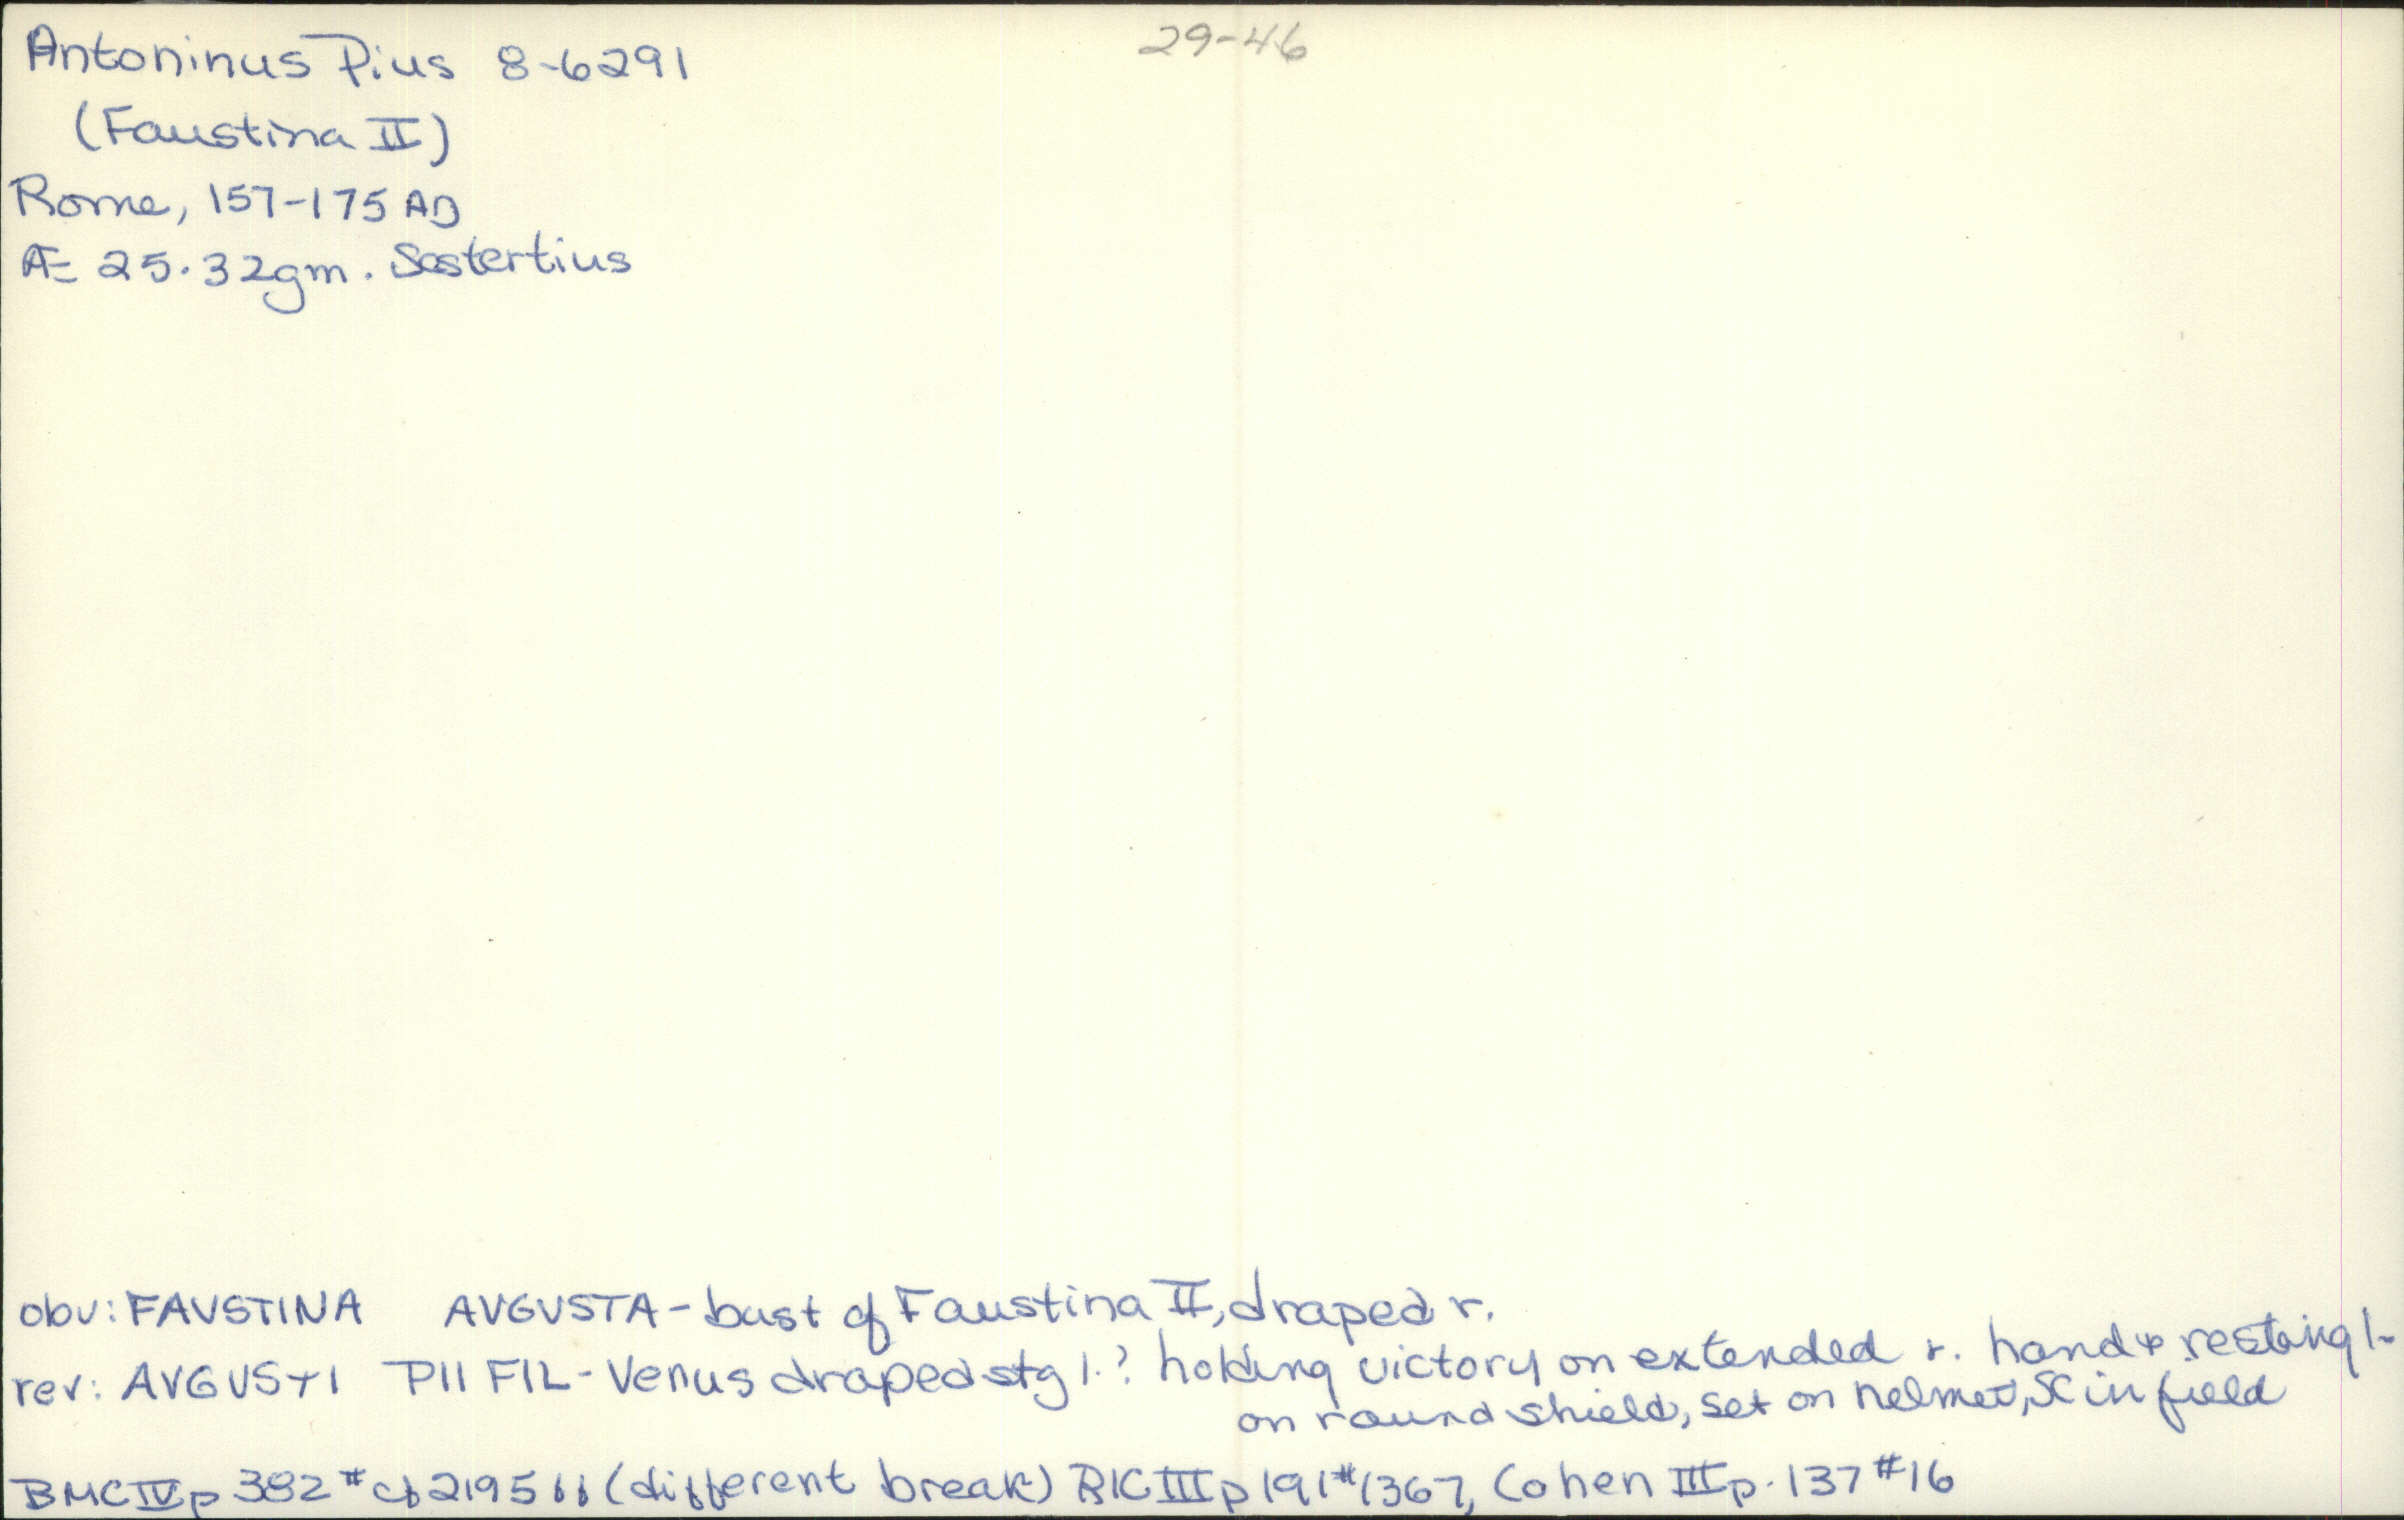 29-46
Antoninus Pius 8-6291
(Faustina II)
Rome, 157-175 AD
Æ 25.32gm. Sestertius
obv: FAVSTINA AVGVSTA - bust of Faustina II, draped r.
rev: AVGVSTI PII FIL - Venus draped stg l.? holding victory on extended r. hand & resting l.
on round shield, set on helmet, SC in field
BMC IV p 382 # cf 2195 ff (different break) RIC III p 191 # 1367, Cohen III p. 137 # 16